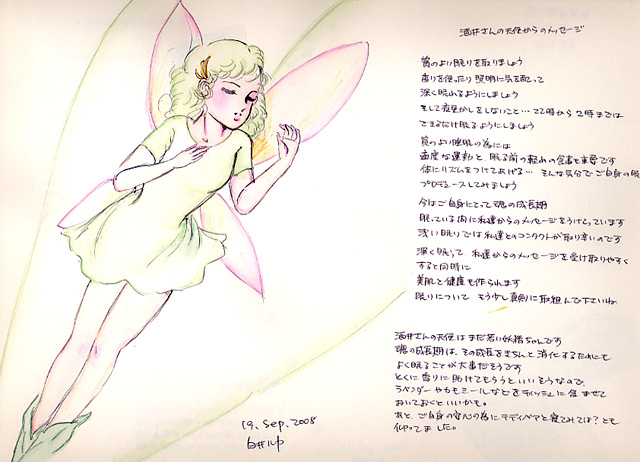 酒井さんの天使からのメッセージ
質のよい眠りを取りましょう
香りを使ったり 照明に気を配って
深く眠れるようにしましょう
そして夜更かしをしないこと… 22時から 2時までは
できるだけ眠るようにしましょう
質のよい睡眠の為には
適度な運動と、眠る前の軽めの食事も重要です
体にリズムをつけてあげる… そんな気分で ご自身の眠
プロデュースしてみましょう
今はご自身にとって魂の成長期
眠っている内に私達からのメッセージをうけとっています
浅い眠りでは私達とのコンタクトが取り辛いのです
深く眠って 私達からのメッセージを受け取りやすく
すると同時に
美肌と健康も作られます
眠りについて もう少し真剣に取組んで下さいね
酒井さんの天使はまだ若い妖精ちゃんです
魂の成長期は、その成長をきちんと消化するためにも
よく眠ることが大事だそうです
とくに香りに助けてもらうといいそうなので、
ラベンダーやカモミールなどをティッシュに含ませて
おいておくといいかも。
あと、ご自身の安心の為にテディベアと寝てみては？とも
仰ってました。
19. Sep. 2008